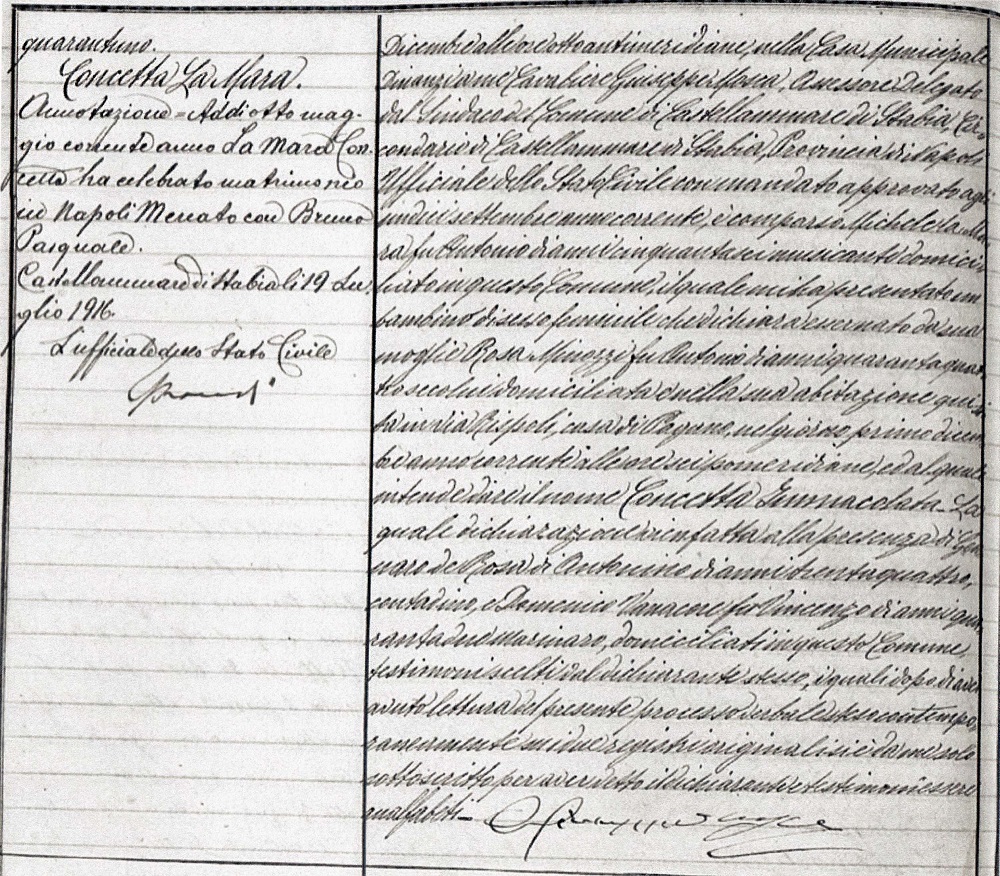 quarantuno.
Concetta La Mara.
Annotazione = Addì otto mag-
gio corrente anno La Mara Con-
cetta ha celebrato matrimonio
in Napoli Mercato con Bruno
Pasquale.
Castellammare di Stabia li 19 Lu-
glio 1916.
L'ufficiale dello Stato Civile
Dicembre alle ore otto antimeridiane, nella Casa Municipale
Dinanzi a me Cavaliere Giuseppe Assessore Delegato
dal Sindaco del Comune di Castellammare di Stabia, Cir-
condario di Castellammare di Stabia, Provincia di Napoli
Ufficiale dello Stato Civile con mandato approvato agli
undici settembre anno corrente, è comparso Michele La Ma-
ra, fu Antonio di anni cinquantasei musicante domici-
liato in questo Comune, il quale mi ha presentato un
bambino di sesso femminile che dichiara essere nato da sua
moglie Rosa Minozzi fu Antonio di anni quaranta quat-
tro seco lui domiciliata e nella sua abitazione qui si-
ta in via Rispoli, casa di Pagano, nel giorno primo dicem-
bre anno corrente alle ore sei pomeridiane, ed al quale
intende dare il nome Concetta Immacolata - La
quale dichiarazione vien fatta alla presenza di Gen-
naro de Rosa di Antonino di anni trentaquattro,
contadino, e Domenico Vanacore fu Vincenzo di anni qua-
rantadue marinaro, domiciliati in questo Comune
testimoni scelti dal dichiarante stesso, i quali dopo di aver
avuto lettura del presente processo verbale steso contempo-
raneamente sui due registri originali si è da me solo
sottoscritto per aver detto il dichiarante e testimoni essere
analfabeti -